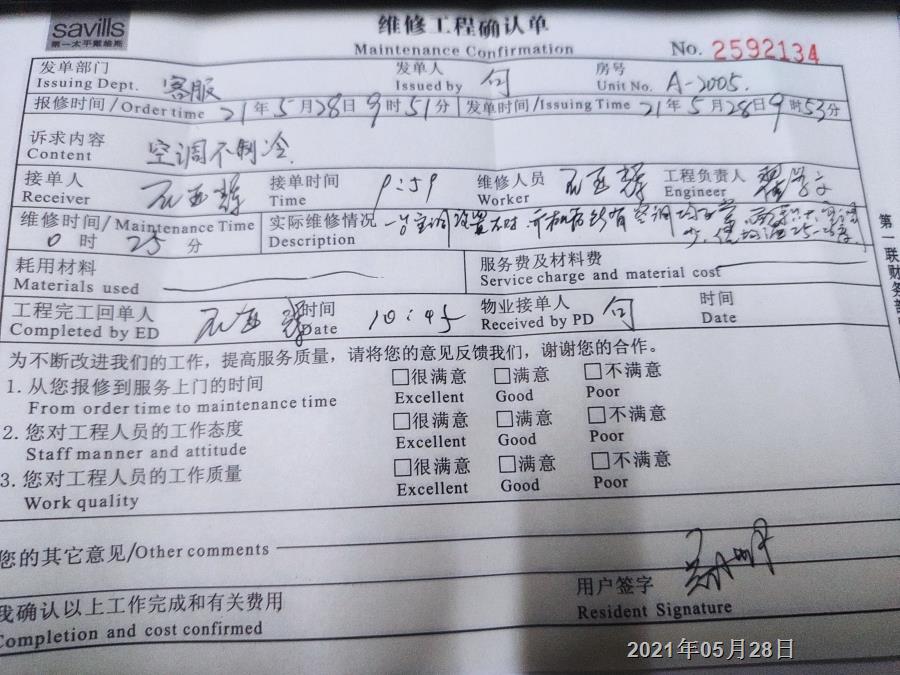 savills
第一太平戴维斯
维修工程确认单
Maintenance Confirmation
No. 2592134
发单部门 客服 发单人 房号 A-2005.
Issuing Dept. Issued by Unit No.
报修时间/Order time 21年5月28日9时51分 发单时间/Issuing Time 21年5月28日9时53分
诉求内容
Content 空调不制冷.
接单人 接单时间 9:59 维修人员 工程负责人
Receiver Time Worker Engineer
维修时间/Maintenance Time 实际维修情况
0时25分 Description
耗用材料 服务费及材料费
Materials used Service charge and material cost
工程完工回单人 时间 10:45 物业接单人 时间
Completed by ED Date Received by PD Date
为不断改进我们的工作，提高服务质量，请将您的意见反馈我们，谢谢您的合作。
1.从您报修到服务上门的时间 □很满意 □满意 □不满意
From order time to maintenance time Excellent Good Poor
2.您对工程人员的工作态度 □很满意 □满意 □不满意
Staff manner and attitude Excellent Good Poor
3.您对工程人员的工作质量 □很满意 □满意 □不满意
Work quality Excellent Good Poor
您的其它意见/Other comments
我确认以上工作完成和有关费用 用户签字
Completion and cost confirmed Resident Signature
第一联财务部
2021年05月28日